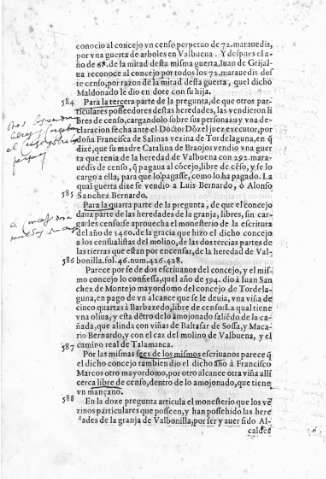 conocio al concejo vn censo perpetuo de 72. marauedis,
por vna guerta de arboles en Valbuena. Y despues el a-
ño de 68. de la mitad desta misma guerta, Iuan de Grijal
ua reconoce al concejo por todos los 72. marauedis des
te censo, por razon de la mitad desta guerta, que dicho
Maldonado le dio en dote con su hija.
584 Para la tercera parte de la pregunta, de que otros par-
ticulares posseedores destas heredades, las vendieron li
bres de censo, cargandolo sobre sus personas ay vna de-
claracion fecha ante el Doctor Dozel juez executor, por
doña Francisca de Salinas vezina de Tordelaguna, en q̃
dize, que su madre Catalina de Braojos vendio vna guer
ta que tenia de la heredad de Valbuena con 292. maraue
dis de censo, q̃ pagaua al cõcejo, libre de cẽso, y se los
cargo a ella, para que lo pagasse, como lo ha pagado. La
qual guerta dize se vendio a Luis Bernardo, ò Alonso
Sanchez Bernardo.
585 Para la quarta parte de la pregunta, de que el concejo
daua parte de las heredades de la granja, libres, sin car-
garles censos: se aprouecha el monesterio de la escritura
del año de 1450. de la gracia que hizo el dicho concejo
a los censualistas del molino, de las dos tercias partes de
las tierras que estan por encensar, de la heredad de Val-
586 bonilla. fol. 46. num. 426. 428.
Parece por fe de dos escriuanos del concejo, y el mis-
mo concejo lo confiessa, que el año de 594. dio a Iuan San
chez de Montejo mayordomo del concejo de Tordela-
guna, en pago de vn alcance que se le deuia, vna viña de
cinco quartas à Barbazedo, libre de censos. La qual tiene
vna oliua, y està dentro de lo amojonado saliẽdo de la ca-
ñada, que alinda con viñas de Baltasar de Sosa, y Maca-
rio Bernardo, y con el caz del molino de Valbuena, y el
camino real de Talamanca.
587 Por las mismas fees de los mismos escriuanos parece q̃
el dicho concejo tambien dio el dicho año à Francisco
Marcos otro mayordomo, por otro alcance otra viña alli
cerca libre de censo, dentro de lo amojonado, que tiene
vn mançano.
588 En la doze pregunta articula el monesterio que los ve
zinos particulares que posseen, y han possehido las here
dades de la granja de Valbonilla, por ser y auer sido Al-
caldes